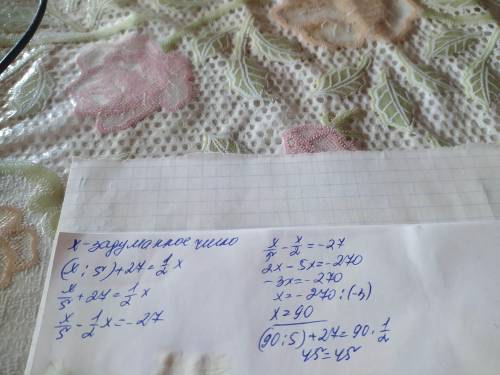 x - задуманное число
(x : 5) + 27 = 1/2 x
x/5 + 27 = 1/2 x
x/5 - 1/2 x = -27
x/5 - x/2 = -27
2x - 5x = -270
-3x = -270
x = -270 : (-3)
x = 90
(90 : 5) + 27 = 90 · 1/2
45 = 45